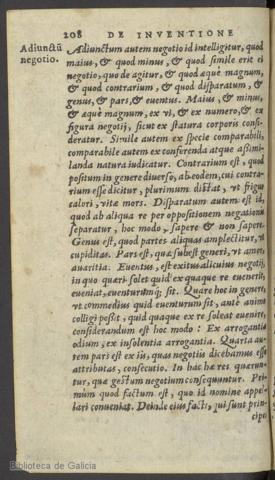 208 DE INVENTIONE
Adiunctũ
negotio.
Adiunctum autem negotio id intelligitur, quod
maius, & quod minus, & quod simile erit ei
negotio, quo de agitur, & quod æquè magnum,
& quod contrarium, & quod disparatum, &
genus, & pars, & euentus. Maius, & minus,
& æquè magnum, ex vi, & ex numero, & ex
figura negotij, sicut ex statura corporis consi-
deratur. Simile autem ex specie comparabili,
comparabile autem ex conferenda atque aßimi-
landa natura iudicatur. Contrarium est, quod
positum in genere diuerso, ab eodem, cui contra-
rium esse dicitur, plurimum distat, vt frigus
calori, vitæ mors. Disparatum autem est id,
quod ab aliqua re per oppositionem negationis
separatur, hoc modo, sapere & non sapere.
Genus est, quod partes aliquas amplectitur, vt
cupiditas. Pars est, quæ subest generi, vt amor,
auaritia. Euentus, est exitus alicuius negotij,
in quo quæri solet quid ex quaque re euenerit,
eueniat, euenturumq; sit. Quare hoc in genere,
vt commodius quid euenturum sit, ante animo
colligi poßit, quid quaque ex re soleat euenire,
considerandum est hoc modo: Ex arrogantia
odium, ex insolentia arrogantia. Quarta au-
tem pars est ex iis, quas negotiis dicebamus esse
attributas, consecutio. In hac hæ res quærun-
tur, quæ gestum negotium consequuntur. Pri-
mum quod factum est, quo id nomine appel-
lari conueniat. Deinde eius facti, qui sint prin-
cipes
Biblioteca de Galicia